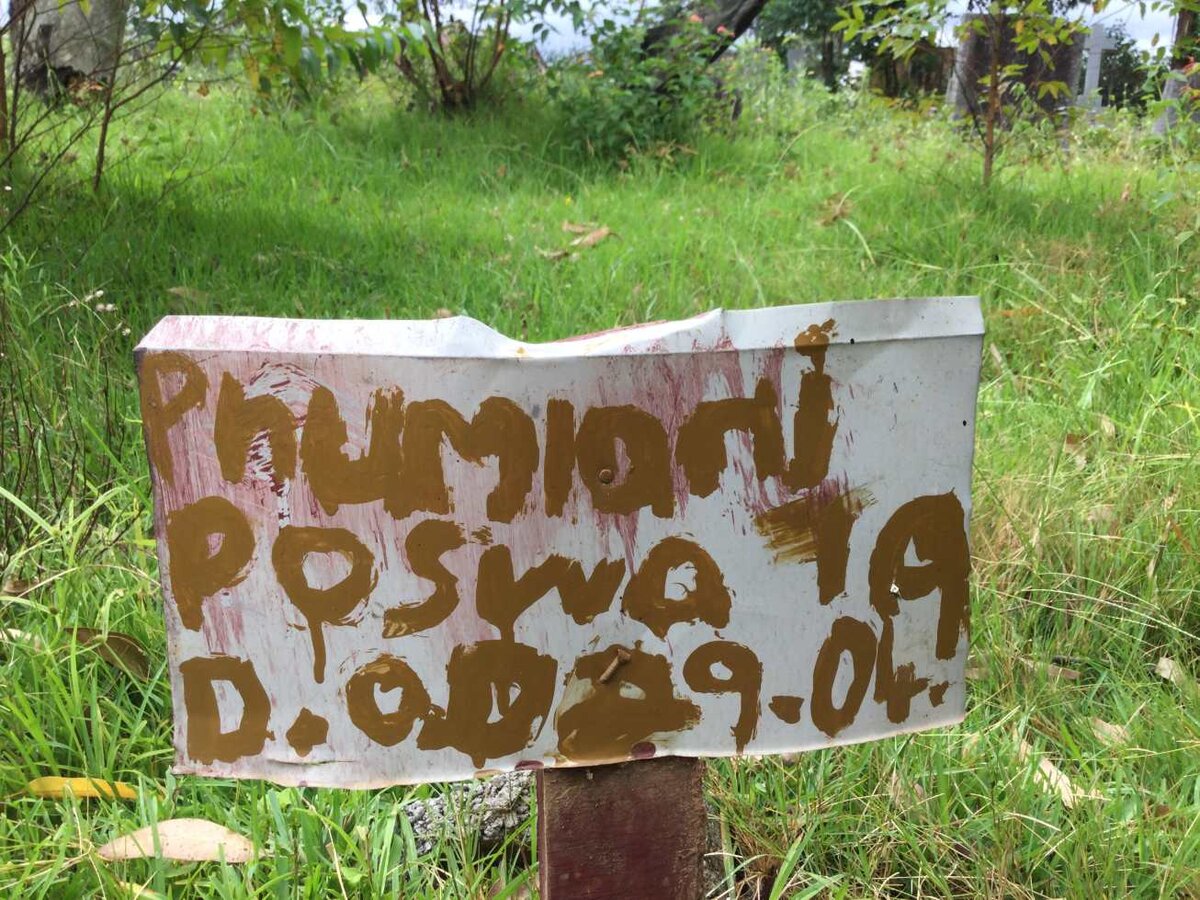 Phumlani
Poswa 19
D.O.D 29-04.